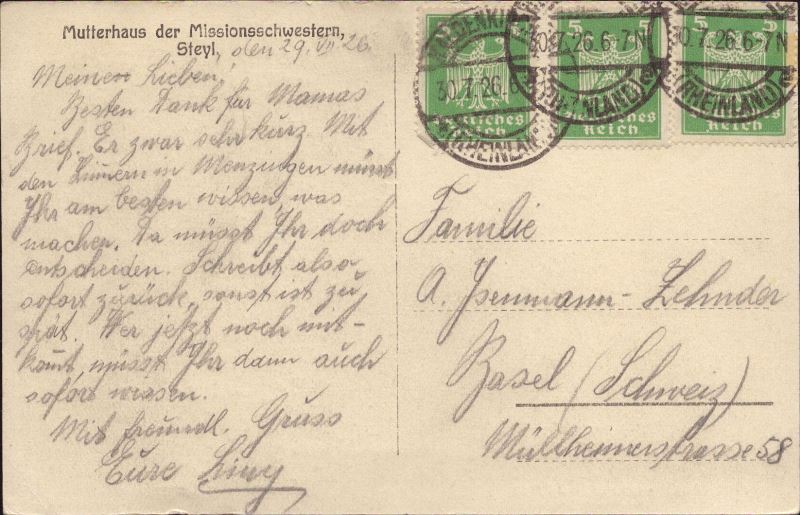 Mutterhaus der Missionsschwestern,
Steyl, den 29. VII 26.
Meine Lieben,
Besten Dank für Mamas
Brief. Er zwar sehr kurz. Mit
den Zimmern in Menzingen müsst
Ihr am besten wissen, was
machen. Da müsst Ihr doch
entscheiden. Schreibt also
sofort zurück, sonst ist zu
spät. Wer jetzt noch mit-
komt, müsst Ihr dann auch
sofort wissen.
Mit freundl. Gruss
Eure Liny
30.7.26.6-7N
(RHEINLAND)
5
5
Deutsches
Reich
Familie
A. Isenmann-Zehnder
Basel (Schweiz)
Müllheimerstrasse 58